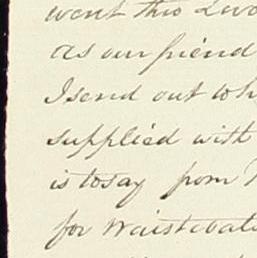 went thro
As our friend
I send out to
supplied with
is to say from
for Waistcoats